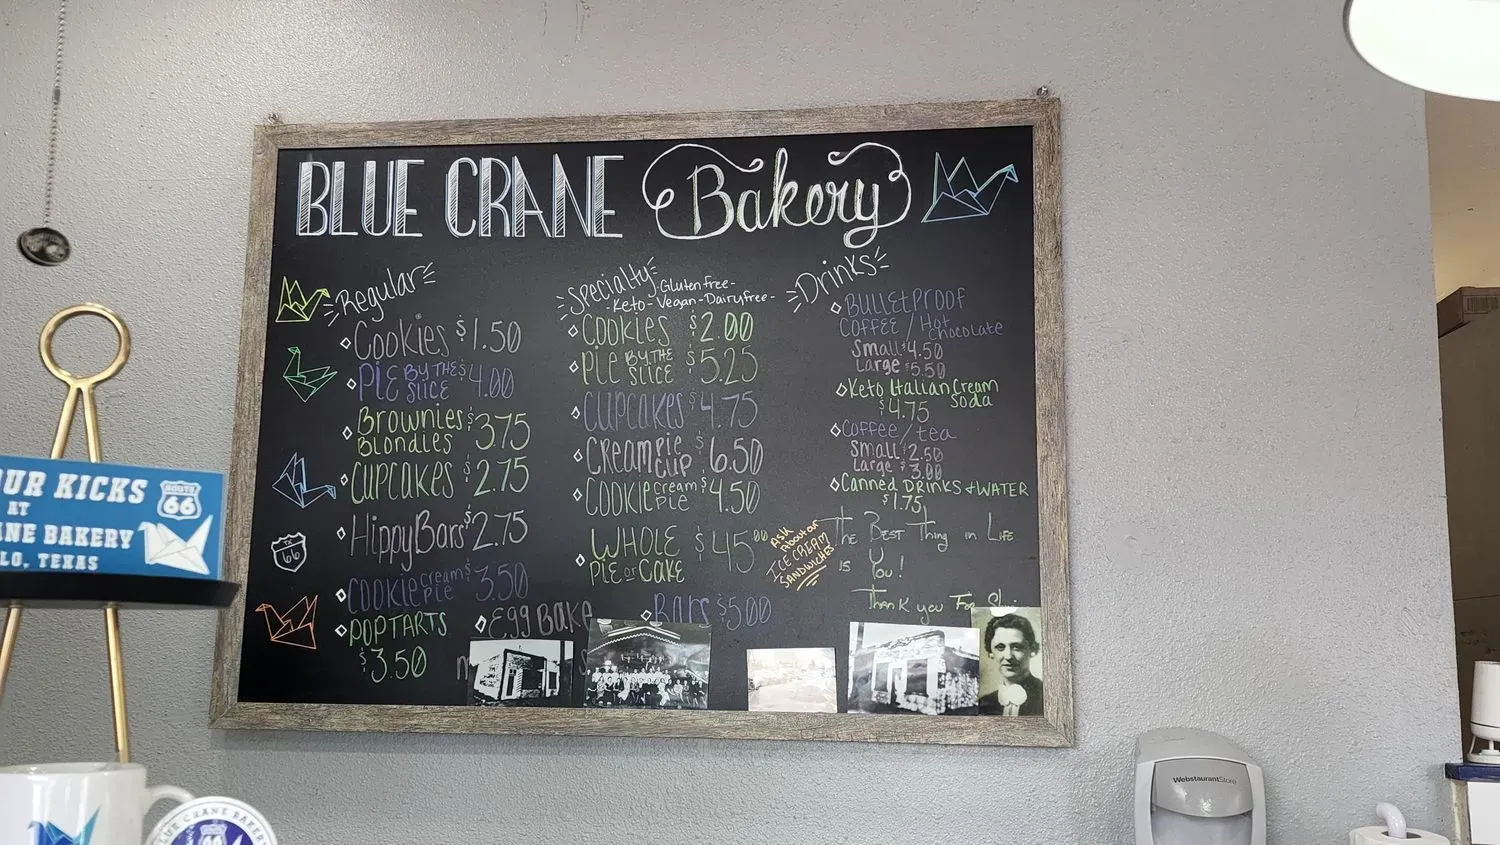 BLUE CRANE Bakery
Regular
Cookies $1.50
PIE BY THE SLICE $4.00
Brownies Blondies $3.75
CUPCAKES $2.75
HippyBars $2.75
COOKIE cream PIE $3.50
POPTARTS
$3.50
EGG BAKE
Specialty
Gluten free-
-Keto-Vegan-Dairyfree-
COOKIES $2.00
PIE BY THE SLICE $5.25
CUPCAKES $4.75
CREAM PIE CUP $6.50
COOKIE cream PIE $4.50
WHOLE PIE or CAKE $45.00
Bars $5.00
ASK About our ICE CREAM SANDWICHES
Drinks
BULLETPROOF
COFFEE / Hot Chocolate
Small $4.50
Large $5.50
Keto Italian Cream Soda
$4.75
Coffee/tea
Small $2.50
Large $3.00
Canned DRINKS + WATER
$1.75
The BEST Thing in LIFE
is
You!
Thank you For
TX 66
UR KICKS
AT
ANE BAKERY
LO, TEXAS
ROUTE 66
BLUE CRANE BAKERY
66
WebstaurantStore